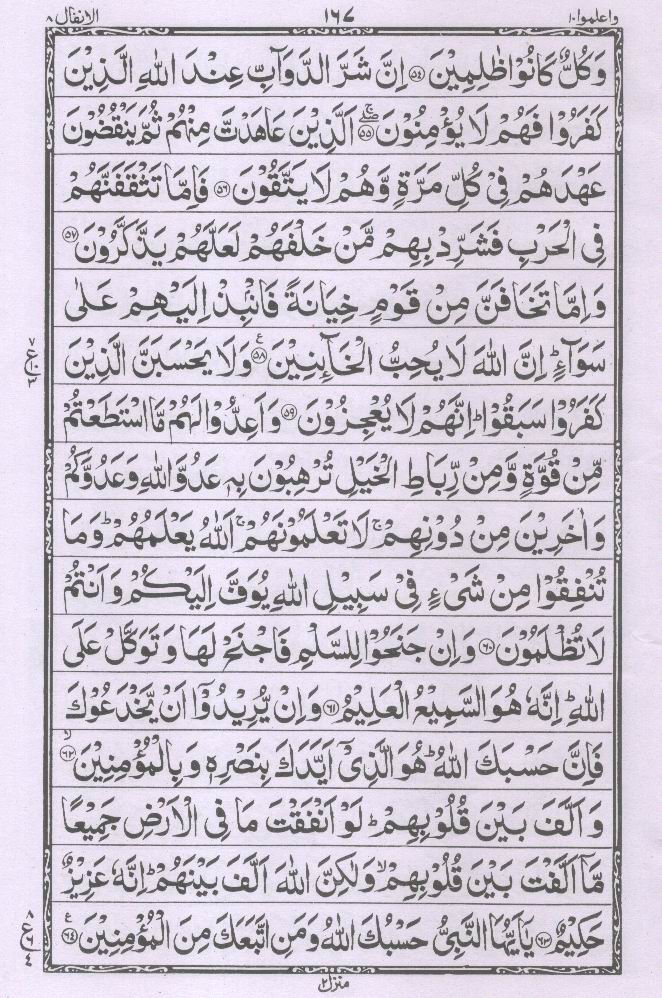 واعلموا ١٠ ١٦٧ الانفال ٨
وَكُلٌّ كَانُوْا ظٰلِمِيْنَ ﴿۵۴﴾ اِنَّ شَرَّ الدَّوَآبِّ عِنْدَ اللّٰهِ الَّذِيْنَ
كَفَرُوْا فَهُمْ لَا يُؤْمِنُوْنَ ﴿۵۵﴾ اَلَّذِيْنَ عَاهَدْتَّ مِنْهُمْ ثُمَّ يَنْقُضُوْنَ
عَهْدَهُمْ فِىْ كُلِّ مَرَّةٍ وَّهُمْ لَا يَتَّقُوْنَ ﴿۵۶﴾ فَاِمَّا تَثْقَفَنَّهُمْ
فِى الْحَرْبِ فَشَرِّدْ بِهِمْ مَّنْ خَلْفَهُمْ لَعَلَّهُمْ يَذَّكَّرُوْنَ ﴿۵۷﴾
وَاِمَّا تَخَافَنَّ مِنْ قَوْمٍ خِيَانَةً فَانْۢبِذْ اِلَيْهِمْ عَلٰى
سَوَآءٍ ؕ اِنَّ اللّٰهَ لَا يُحِبُّ الْخَآئِنِيْنَ ﴿۵۸﴾ ع وَلَا يَحْسَبَنَّ الَّذِيْنَ
٧ ع ١٠ ٣
كَفَرُوْا سَبَقُوْا ؕ اِنَّهُمْ لَا يُعْجِزُوْنَ ﴿۵۹﴾ وَاَعِدُّوْا لَهُمْ مَّا اسْتَطَعْتُمْ
مِّنْ قُوَّةٍ وَّمِنْ رِّبَاطِ الْخَيْلِ تُرْهِبُوْنَ بِهٖ عَدُوَّ اللّٰهِ وَعَدُوَّكُمْ
وَاٰخَرِيْنَ مِنْ دُوْنِهِمْ ۚ لَا تَعْلَمُوْنَهُمْ ۚ اَللّٰهُ يَعْلَمُهُمْ ؕ وَمَا
تُنْفِقُوْا مِنْ شَىْءٍ فِىْ سَبِيْلِ اللّٰهِ يُوَفَّ اِلَيْكُمْ وَاَنْتُمْ
لَا تُظْلَمُوْنَ ﴿۶۰﴾ وَاِنْ جَنَحُوْا لِلسَّلْمِ فَاجْنَحْ لَهَا وَتَوَكَّلْ عَلَى
اللّٰهِ ؕ اِنَّهٗ هُوَ السَّمِيْعُ الْعَلِيْمُ ﴿۶۱﴾ وَاِنْ يُّرِيْدُوْۤا اَنْ يَّخْدَعُوْكَ
فَاِنَّ حَسْبَكَ اللّٰهُ ؕ هُوَ الَّذِىْۤ اَيَّدَكَ بِنَصْرِهٖ وَبِالْمُؤْمِنِيْنَ ۙ﴿۶۲﴾
وَاَلَّفَ بَيْنَ قُلُوْبِهِمْ ؕ لَوْ اَنْفَقْتَ مَا فِى الْاَرْضِ جَمِيْعًا
مَّاۤ اَلَّفْتَ بَيْنَ قُلُوْبِهِمْ ۙ وَلٰكِنَّ اللّٰهَ اَلَّفَ بَيْنَهُمْ ؕ اِنَّهٗ عَزِيْزٌ
حَكِيْمٌ ﴿۶۳﴾ يٰۤاَيُّهَا النَّبِىُّ حَسْبُكَ اللّٰهُ وَمَنِ اتَّبَعَكَ مِنَ الْمُؤْمِنِيْنَ ﴿۶۴﴾ ع
٨ ع ٦ ٤
منزل ٢